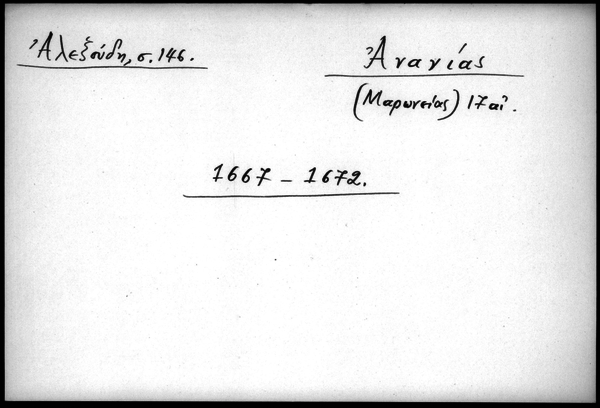 Ἀλεξούδη, σ. 146.
Ἀνανίας
(Μαρωνείας) 17 αἰ.
1667 - 1672.